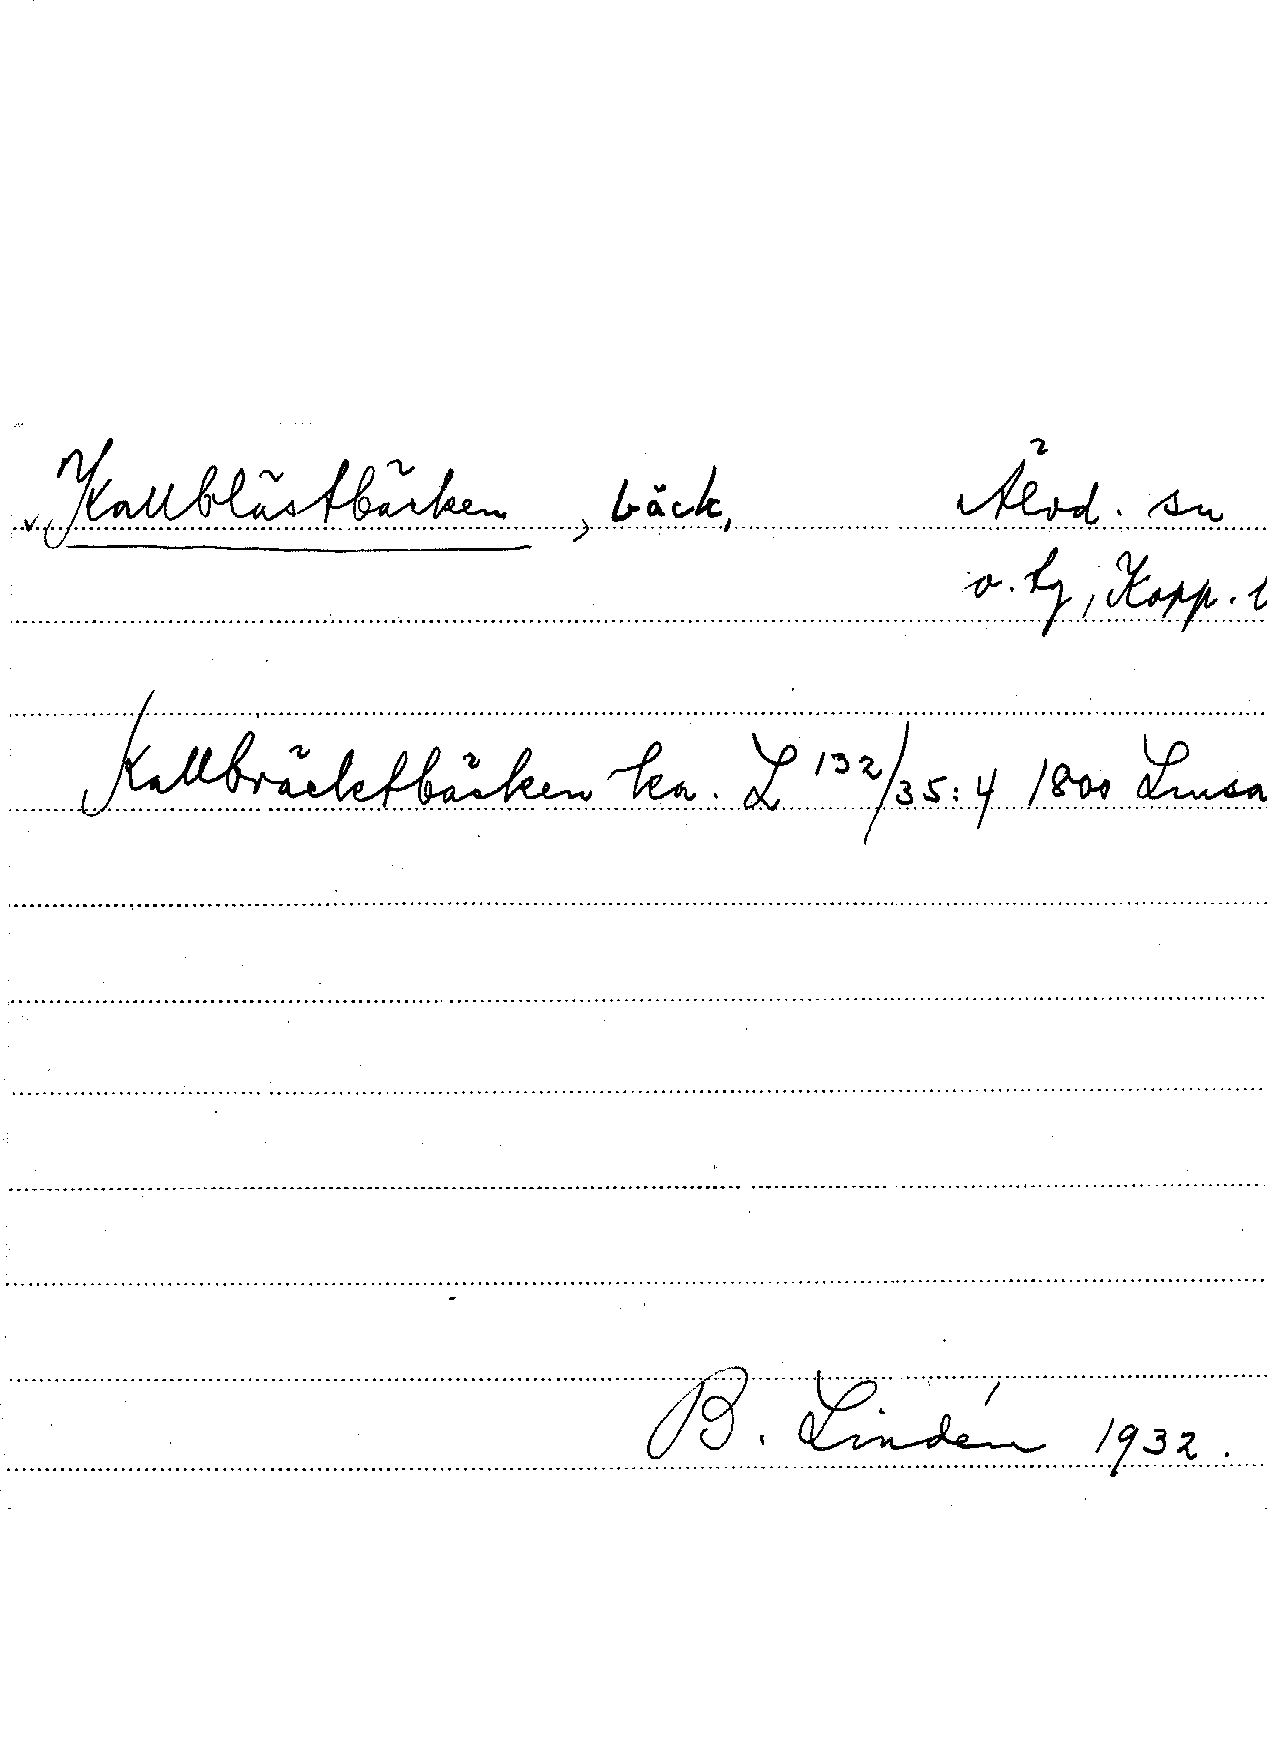 Kallblästbäcken, bäck, Älvd. sn
o. tg, Kopp. l
Kallbräcktbäcken ka. L 132/35:4 1800 Lmsa
B. Lindén 1932.